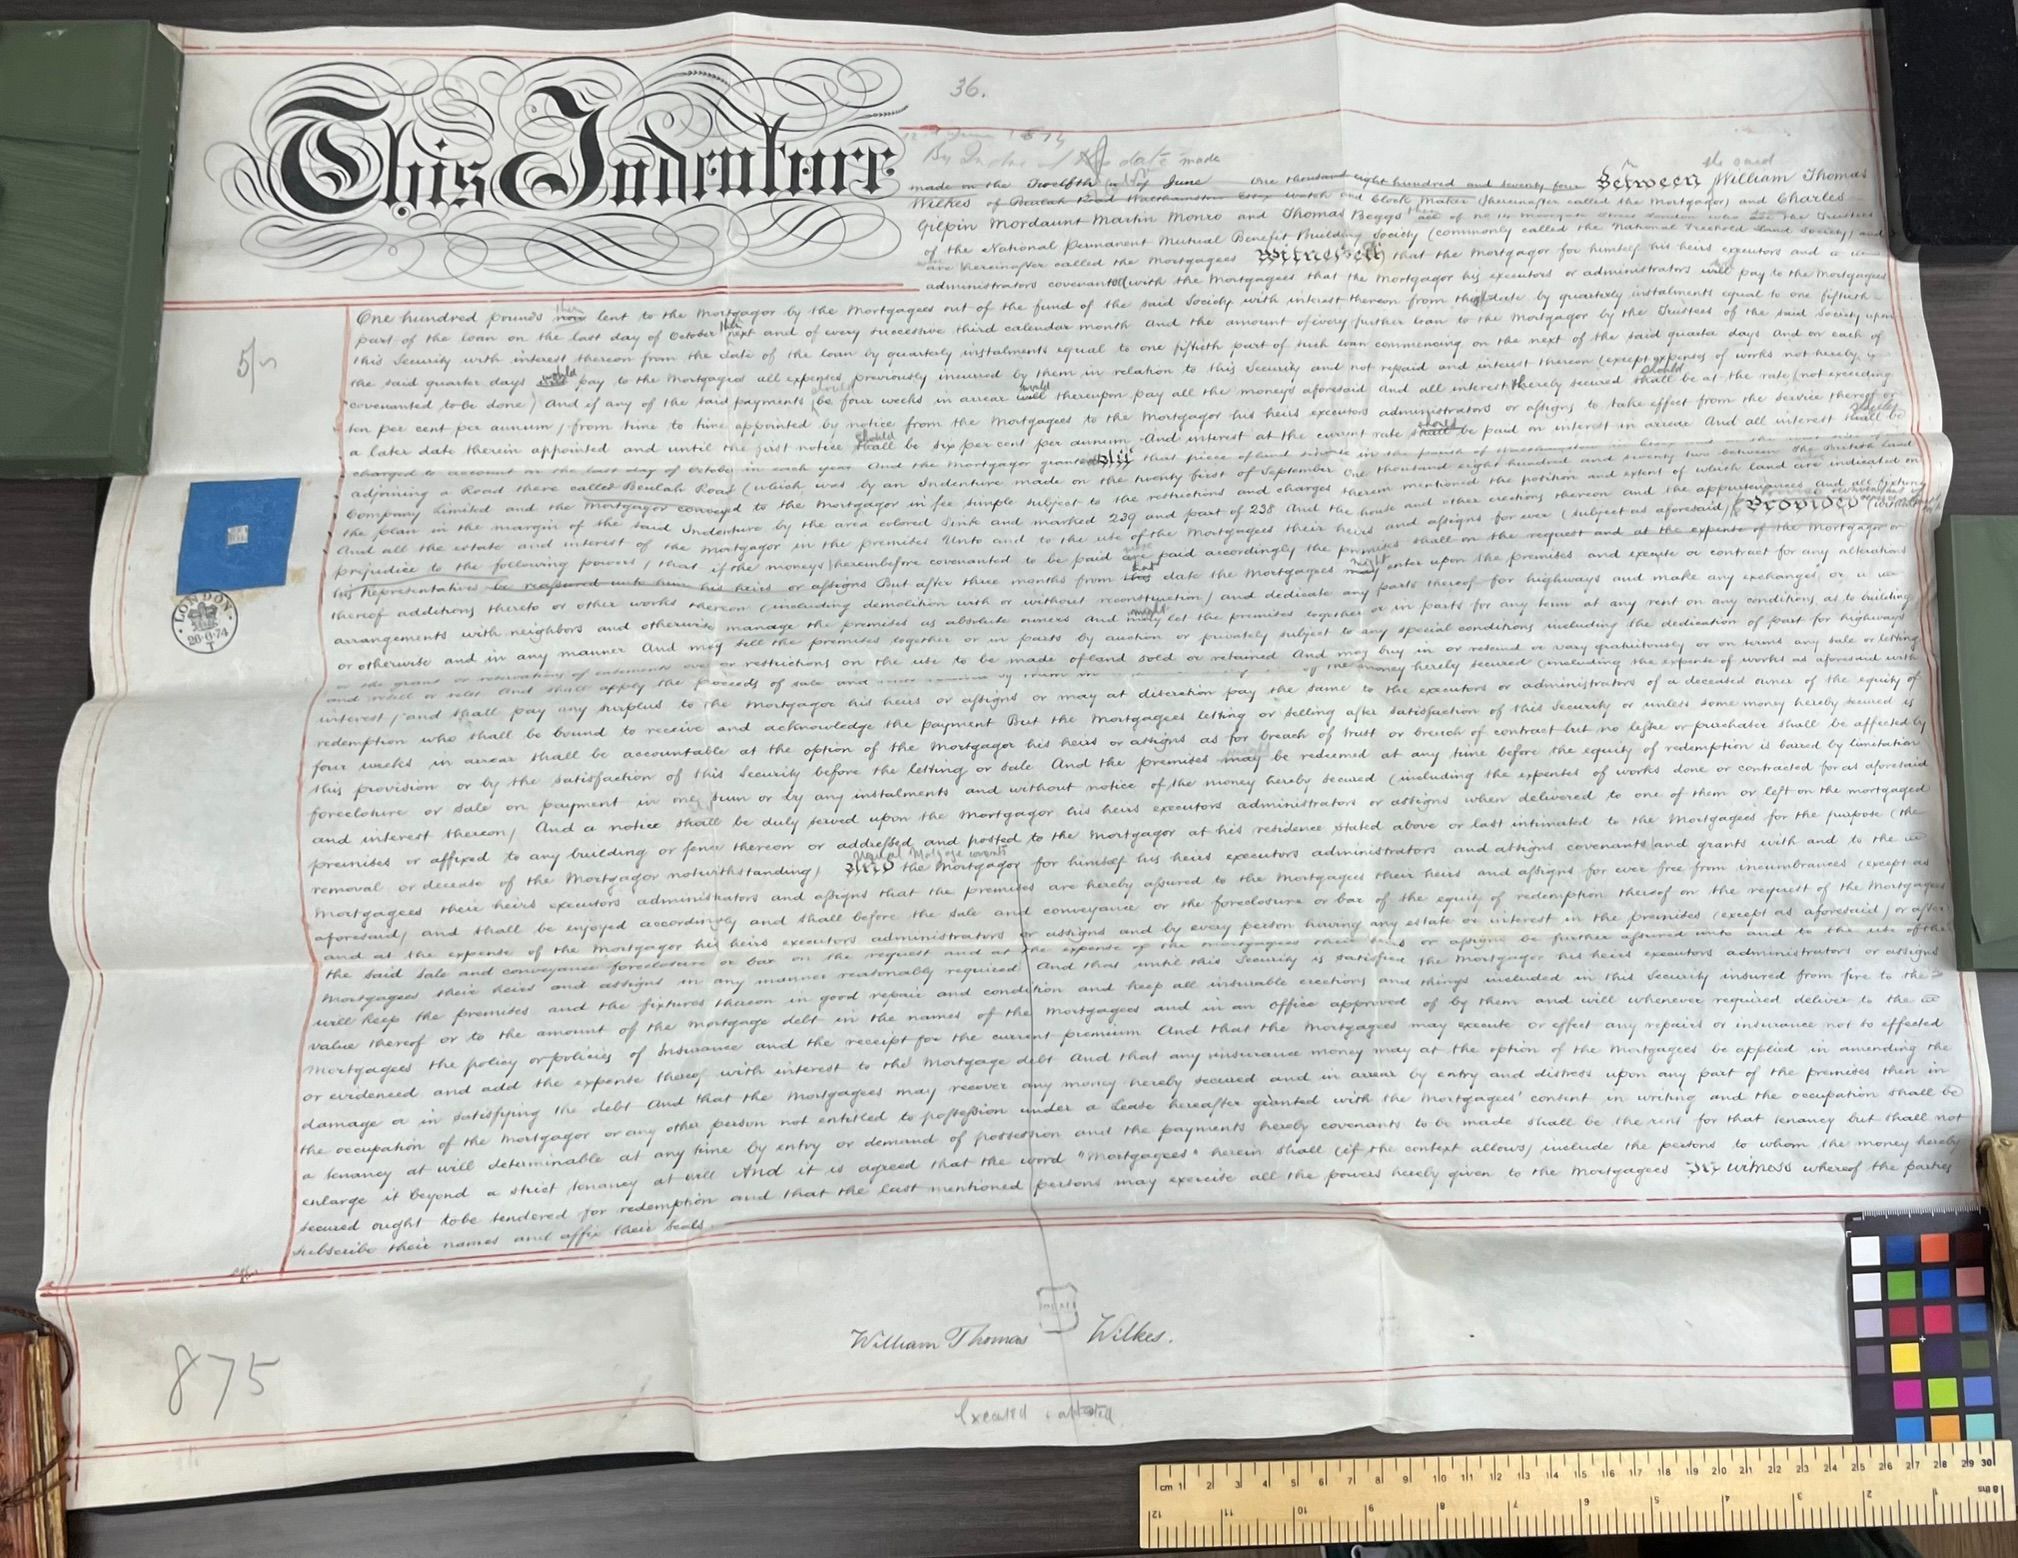 36.
This Indenture
By Indre of date made
made on the Twelfth of June One thousand eight hundred and seventy four Between the said William Thomas
Wilkes of Beulah Road Walthamstow Essex Watch and Clock Maker (hereinafter called the Mortgagor) and Charles
Gilpin Mordaunt Martin Monro and Thomas Beggs all of No 14 Moorgate Street London who are the Trustees
of the National Permanent Mutual Benefit Building Society (commonly called the National Freehold Land Society) and
are hereinafter called the Mortgagees Witnesseth that the Mortgagor for himself his heirs executors and
administrators covenants with the Mortgagees that the Mortgagor his executors or administrators will pay to the Mortgagees
One hundred pounds now then lent to the Mortgagor by the Mortgagees out of the fund of the said Society with interest thereon from this date by quarterly instalments equal to one fiftieth
part of the loan on the last day of October then next and of every successive third calendar month And the amount of every further loan to the Mortgagor by the Trustees of the said Society upon
this Security with interest thereon from the date of the loan by quarterly instalments equal to one fiftieth part of such loan commencing on the next of the said quarter days And on each of
5/-
the said quarter days would pay to the Mortgagees all expenses previously incurred by them in relation to this Security and not repaid and interest thereon (except expenses of works not hereby
covenanted to be done) And if any of the said payments should be four weeks in arrear will would thereupon pay all the moneys aforesaid And all interest thereby secured shall should be at the rate (not exceeding
ten per cent per annum) from time to time appointed by notice from the Mortgagees to the Mortgagor his heirs executors administrators or assigns to take effect from the service thereof or
a later date therein appointed and until the first notice shall should be six per cent per annum And interest at the current rate shall should be paid on interest in arrear And all interest shall should be
charged to account on the last day of October in each year And the Mortgagor grants All that piece of land situate in the parish of Walthamstow in Essex and on the
adjoining a Road there called Beulah Road (which was by an Indenture made on the twenty first of September One thousand eight hundred and seventy two between The British Land
Company Limited and the Mortgagor conveyed to the Mortgagor in fee simple subject to the restrictions and charges therein mentioned the position and extent of which land are indicated on
the plan in the margin of the said Indenture by the area colored Pink and marked 239 and part of 238 And the house and other erections thereon and the appurtenances and all fixtures
And all the estate and interest of the Mortgagor in the premises Unto and to the use of the Mortgagees their heirs and assigns for ever (subject as aforesaid) Provided (without
prejudice to the following powers) that if the moneys hereinbefore covenanted to be paid are were paid accordingly the premises shall on the request and at the expense of the Mortgagor or
his Representatives be reassured unto him his heirs or assigns But after three months from this that date the Mortgagees may might enter upon the premises and execute or contract for any alterations
thereof additions thereto or other works thereon (including demolition with or without reconstruction) and dedicate any parts thereof for highways and make any exchanges or
arrangements with neighbors and otherwise manage the premises as absolute owners and may might let the premises together or in parts for any term at any rent on any conditions as to building
or otherwise and in any manner And may sell the premises together or in parts by auction or privately subject to any special conditions including the dedication of part for highways
or the grant or reservations of easements over or restrictions on the use to be made of land sold or retained And may buy in or rescind or vary gratuitously or on terms any sale or letting
and resell or relet And shall apply the proceeds of sale and of the money hereby secured (including the expense of works as aforesaid with
interest) and shall pay any surplus to the Mortgagor his heirs or assigns or may at discretion pay the same to the executors or administrators of a deceased owner of the equity of
redemption who shall be bound to receive and acknowledge the payment But the Mortgagees letting or selling after satisfaction of this Security or unless some money hereby secured is
four weeks in arrear shall be accountable at the option of the Mortgagor his heirs or assigns as for breach of trust or breach of contract but no lessee or purchaser shall be affected by
this provision or by the satisfaction of this Security before the letting or sale And the premises may might be redeemed at any time before the equity of redemption is barred by limitation
foreclosure or sale on payment in one sum or by any instalments and without notice of the money hereby secured (including the expenses of works done or contracted for as aforesaid
and interest thereon) And a notice shall be duly served upon the Mortgagor his heirs executors administrators or assigns when delivered to one of them or left on the mortgaged
premises or affixed to any building or fence thereon or addressed and posted to the Mortgagor at his residence stated above or last intimated to the Mortgagees for the purpose (the
removal or decease of the Mortgagor notwithstanding) And Usual Mortgage covents the Mortgagor for himself his heirs executors administrators and assigns covenants and grants with and to the
Mortgagees their heirs executors administrators and assigns that the premises are hereby assured to the Mortgagees their heirs and assigns for ever free from incumbrances (except as
aforesaid) and shall be enjoyed accordingly and shall before the sale and conveyance or the foreclosure or bar of the equity of redemption thereof on the request of the Mortgagees
and at the expense of the Mortgagor his heirs executors administrators or assigns and by every person having any estate or interest in the premises (except as aforesaid) or after
the said sale and conveyance foreclosure or bar on the request and at the expense of the Mortgagees their heirs or assigns be further assured unto and to the use of the
Mortgagees their heirs and assigns in any manner reasonably required And that until this Security is satisfied the Mortgagor his heirs executors administrators or assigns
will keep the premises and the fixtures thereon in good repair and condition and keep all insurable erections and things included in this Security insured from fire to the
value thereof or to the amount of the Mortgage debt in the names of the Mortgagees and in an Office approved of by them and will whenever required deliver to the
Mortgagees the policy or policies of Insurance and the receipt for the current premium And that the Mortgagees may execute or effect any repairs or insurance not so effected
or evidenced and add the expense thereof with interest to the Mortgage debt And that any insurance money may at the option of the Mortgagees be applied in amending the
damage or in satisfying the debt And that the Mortgagees may recover any money hereby secured and in arrear by entry and distress upon any part of the premises then in
the occupation of the Mortgagor or any other person not entitled to possession under a Lease hereafter granted with the Mortgagees' consent in writing and the occupation shall be
a tenancy at will determinable at any time by entry or demand of possession and the payments hereby covenants to be made shall be the rent for that tenancy but shall not
enlarge it beyond a strict tenancy at will And it is agreed that the word "Mortgagees" herein shall (if the context allows) include the persons to whom the money hereby
secured ought to be tendered for redemption and that the last mentioned persons may exercise all the powers hereby given to the Mortgagees In witness whereof the parties
subscribe their names and affix their seals.
LONDON
26·6·74
T
William Thomas Wilkes.
875
Executed & attested
cm 1 2 3 4 5 6 7 8 9 10 11 12 13 14 15 16 17 18 19 20 21 22 23 24 25 26 27 28 29 30
12 11 10 9 8 7 6 5 4 3 2 1 8ths